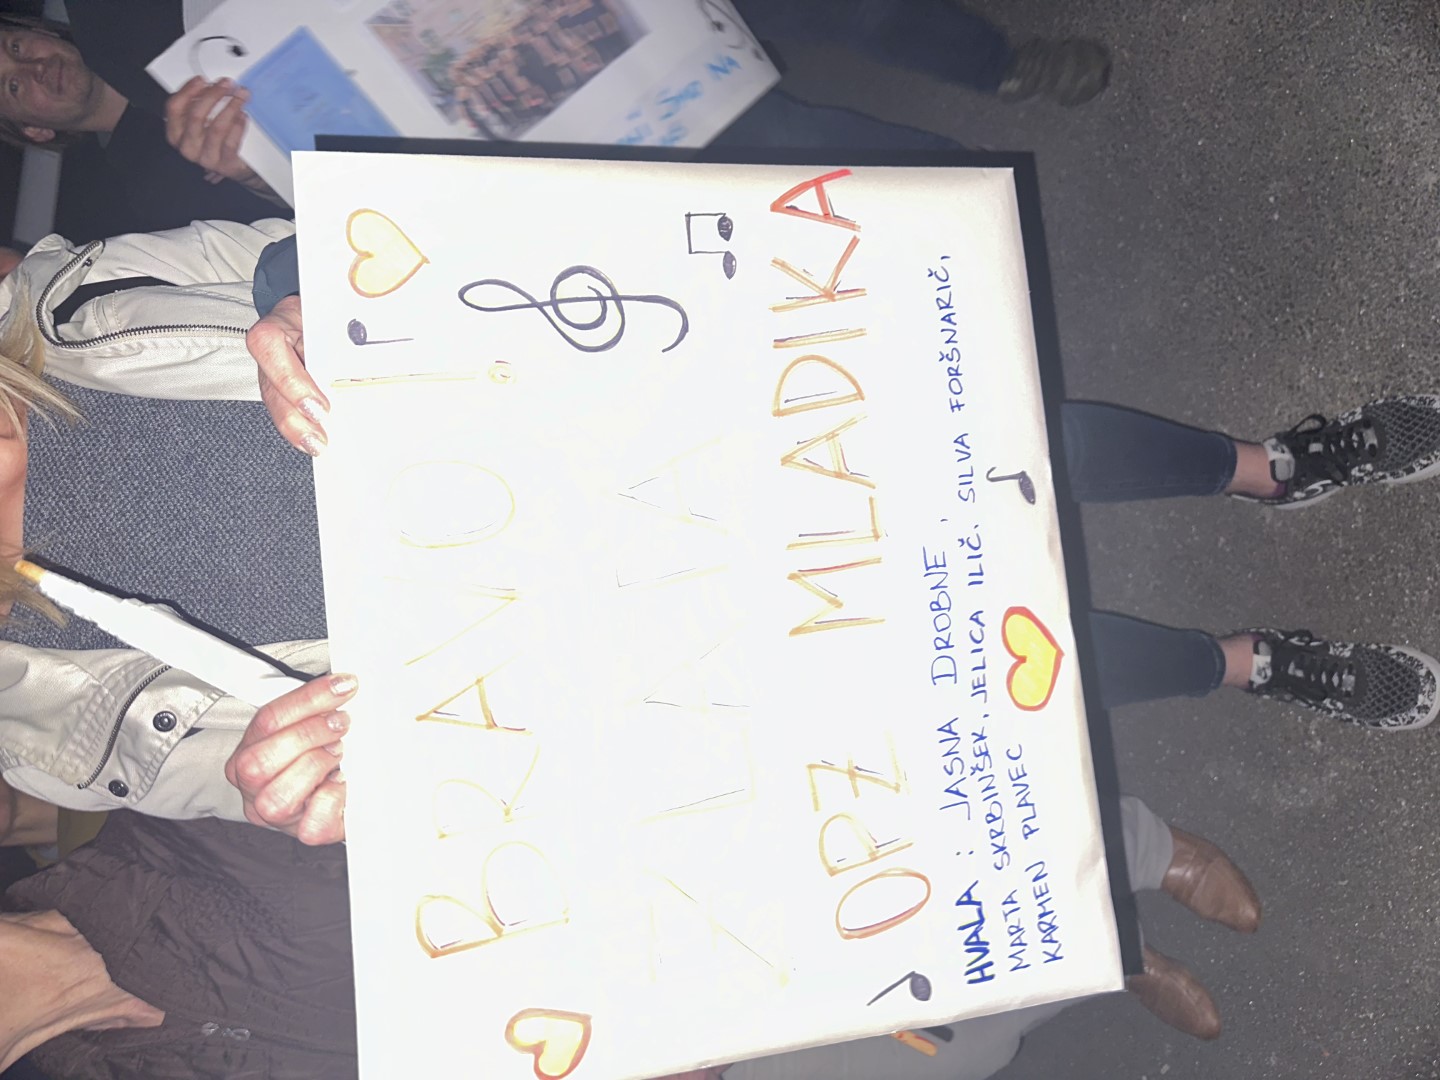 BRAVO!
ZLATA
OPZ MLADIKA
HVALA: JASNA DROBNE,
MARTA SKRBINŠEK, JELICA ILIČ, SILVA FORŠNARIČ,
KARMEN PLAVEC